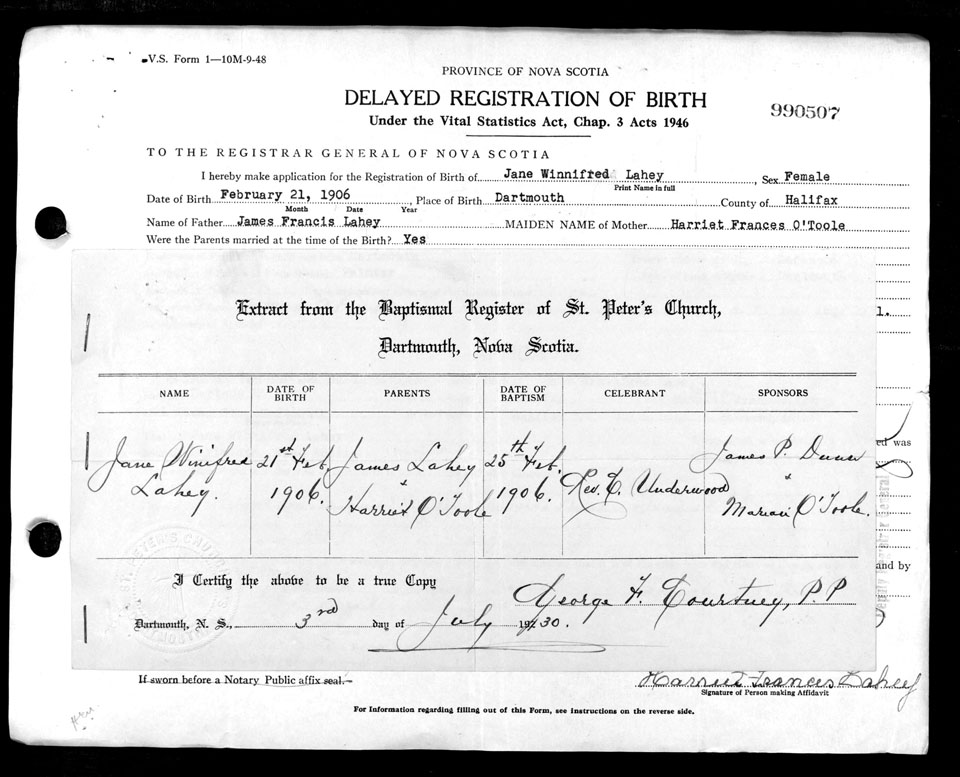 V.S. Form 1—10M-9-48
PROVINCE OF NOVA SCOTIA
DELAYED REGISTRATION OF BIRTH
990507
Under the Vital Statistics Act, Chap. 3 Acts 1946
TO THE REGISTRAR GENERAL OF NOVA SCOTIA
I hereby make application for the Registration of Birth of Jane Winnifred Lahey, Sex Female
Print Name in full
Date of Birth February 21, 1906, Place of Birth Dartmouth County of Halifax
Month Date Year
Name of Father James Francis Lahey MAIDEN NAME of Mother Harriet Frances O'Toole
Were the Parents married at the time of the Birth? Yes
Extract from the Baptismal Register of St. Peter's Church,
Dartmouth, Nova Scotia.
NAME DATE OF BIRTH PARENTS DATE OF BAPTISM CELEBRANT SPONSORS
Jane Winifred 21st Feb. James Lahey 25th Feb. James P. Dunn
Lahey. 1906. & Harriet O'Toole 1906. Rev. E. Underwood & Marian O'Toole.
ed was
and by
Deputy Registrar General
I Certify the above to be a true Copy
George F. Courtney, P.P
Dartmouth, N. S., 3rd day of July 1930.
If sworn before a Notary Public affix seal.
Harriet Frances Lahey
Signature of Person making Affidavit
For Information regarding filling out of this Form, see instructions on the reverse side.